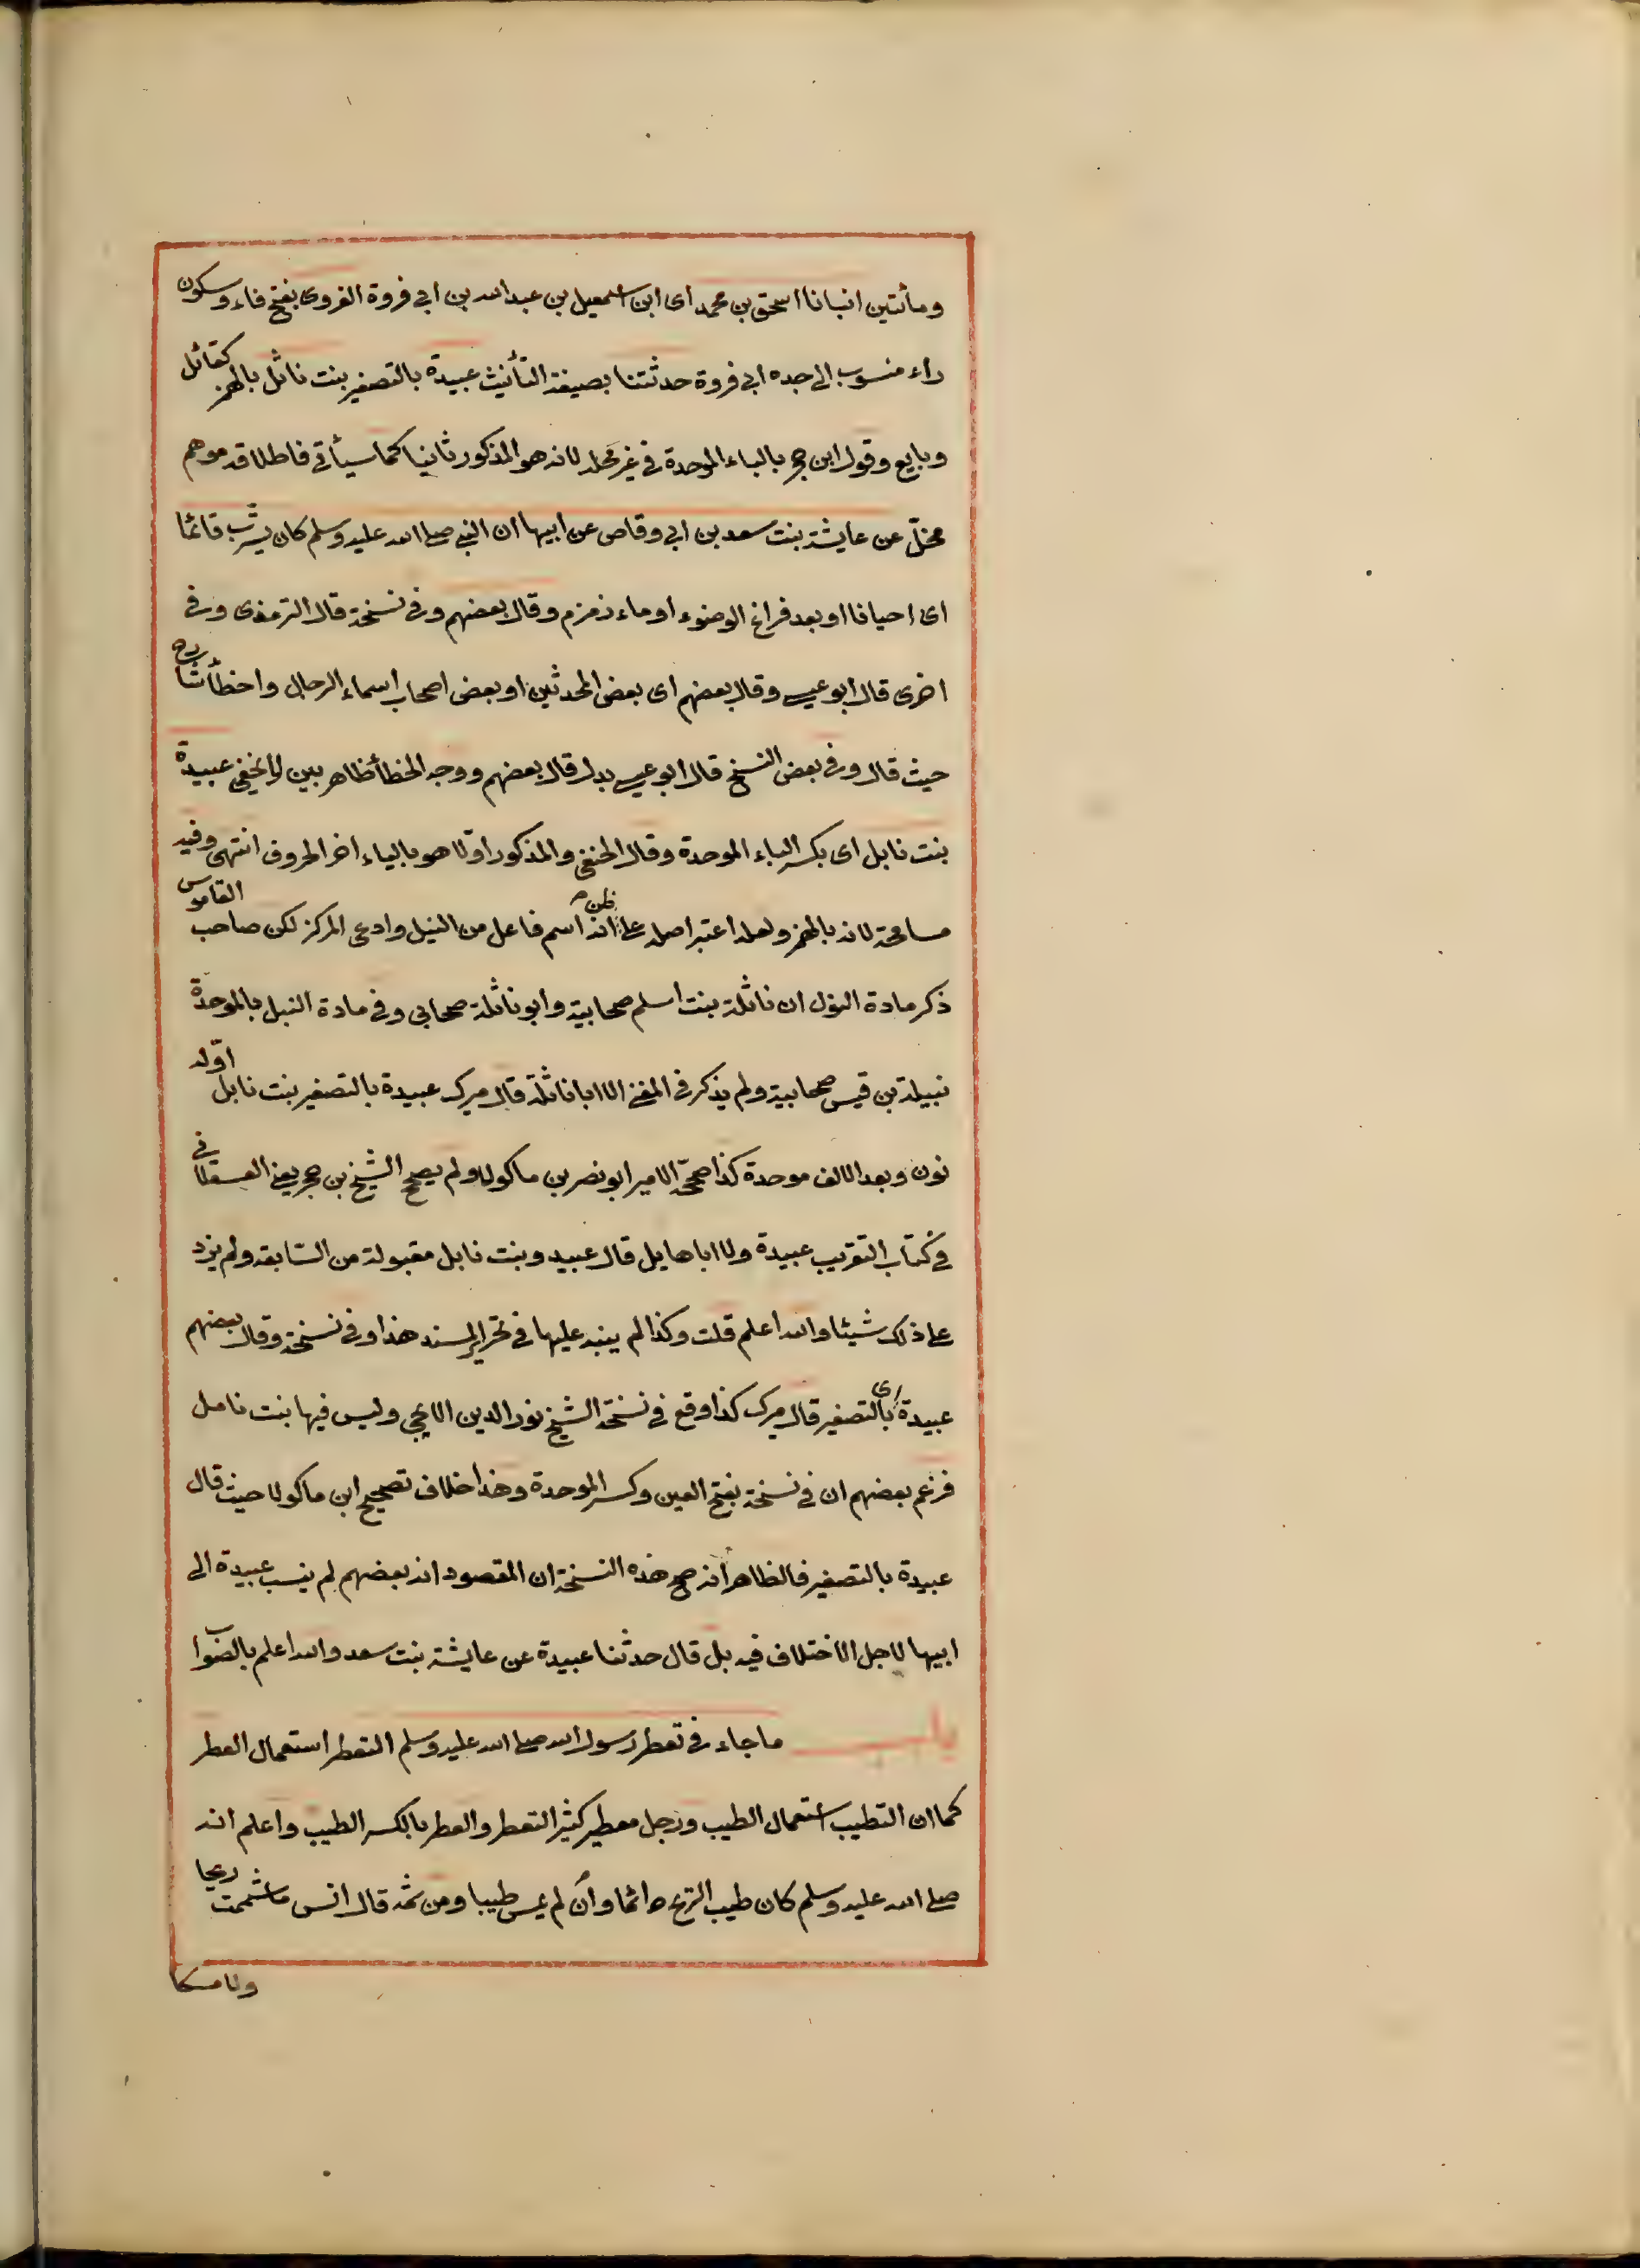 ومأتين انبانا اسحق بن محمد اى ابن اسمعيل بن عبدالله بن ابي فروة الفروى بفتح فاء وسكون
راء منسوب الى جده ابي فروة حدثتنا بصيغة التأنيث عبيدة بالتصغير بنت نائل بالهمز كقائل
وبايع وقول ابن حجر بالباء الموحدة في غير محله لانه هو المذكور ثانيا كما سيأتي فاطلاقه موهم
مخلّ عن عايشة بنت سعد بن ابي وقاص عن ابيها ان النبي صلى الله عليه وسلم كان يشرب قائما
اى احيانا او بعد فراغ الوضوء او ماء زمزم وقال بعضهم وفي نسخة قال الترمذى وفي
اخرى قال ابو عيسى وقال بعضهم اى بعض المحدثين او بعض اصحاب اسماء الرجال واخطأ شارح
حيث قال وفي بعض النسخ قال ابو عيسى بدل قال بعضهم ووجه الخطأ ظاهر بين لا يخفى عبيدة
بنت نابل اى بكسر الباء الموحدة وقال الحنفى والمذكور اولا هو بالياء اخر الحروف انتهى وفيه
مسامحة لانه بالهمز ولعله اعتبر اصله على ظن انه اسم فاعل من النيل وادعى المركز لكن صاحب القاموس
ذكر مادة النول ان نائلة بنت اسلم صحابية وابو نائلة صحابي وفي مادة النبل بالموحدة
نبيلة بن قيس صحابية ولم يذكر في المغنى الا ابا نائلة قال ميرك عبيدة بالتصغير بنت نابل اوّله
نون وبعد الالف موحدة كذا صححّه الامير ابو نصر بن ماكولا ولم يصحح الشيخ بن حجر يعنى العسقلانى
في كتاب التقريب عبيدة ولا اباها بل قال عبيد وبنت نابل مقبولة من السّابعة ولم يزد
على ذلك شيئا والله اعلم قلت وكذا لم ينبه عليها في تحرير المسند هذا وفي نسخة وقال بعضهم
عبيدة اى بالتصغير قال ميرك كذا وقع في نسخة الشيخ نور الدين الايجى وليس فيها بنت نامل
فزعم بعضهم ان في نسخة بفتح العين وكسر الموحدة وهذا خلاف تصحيح ابن ماكولا حيث قال
عبيدة بالتصغير فالظاهر انه صح هذه النسخة ان المقصود انه بعضهم لم ينسب عبيدة الى
ابيها لاجل الاختلاف فيه بل قال حدثنا عبيدة عن عايشة بنت سعد والله اعلم بالصّواب
باب ما جاء في تعطر رسول الله صلى الله عليه وسلم التعطر استعمال العطر
كما ان التطيب استعمال الطيب ورجل معطير كثير التعطر والعطر بالكسر الطيب واعلم انه
صلى الله عليه وسلم كان طيب الريح دائما وان لم يمس طيبا ومن ثمه قال انس ما شممت ريحا
ولا مسكا